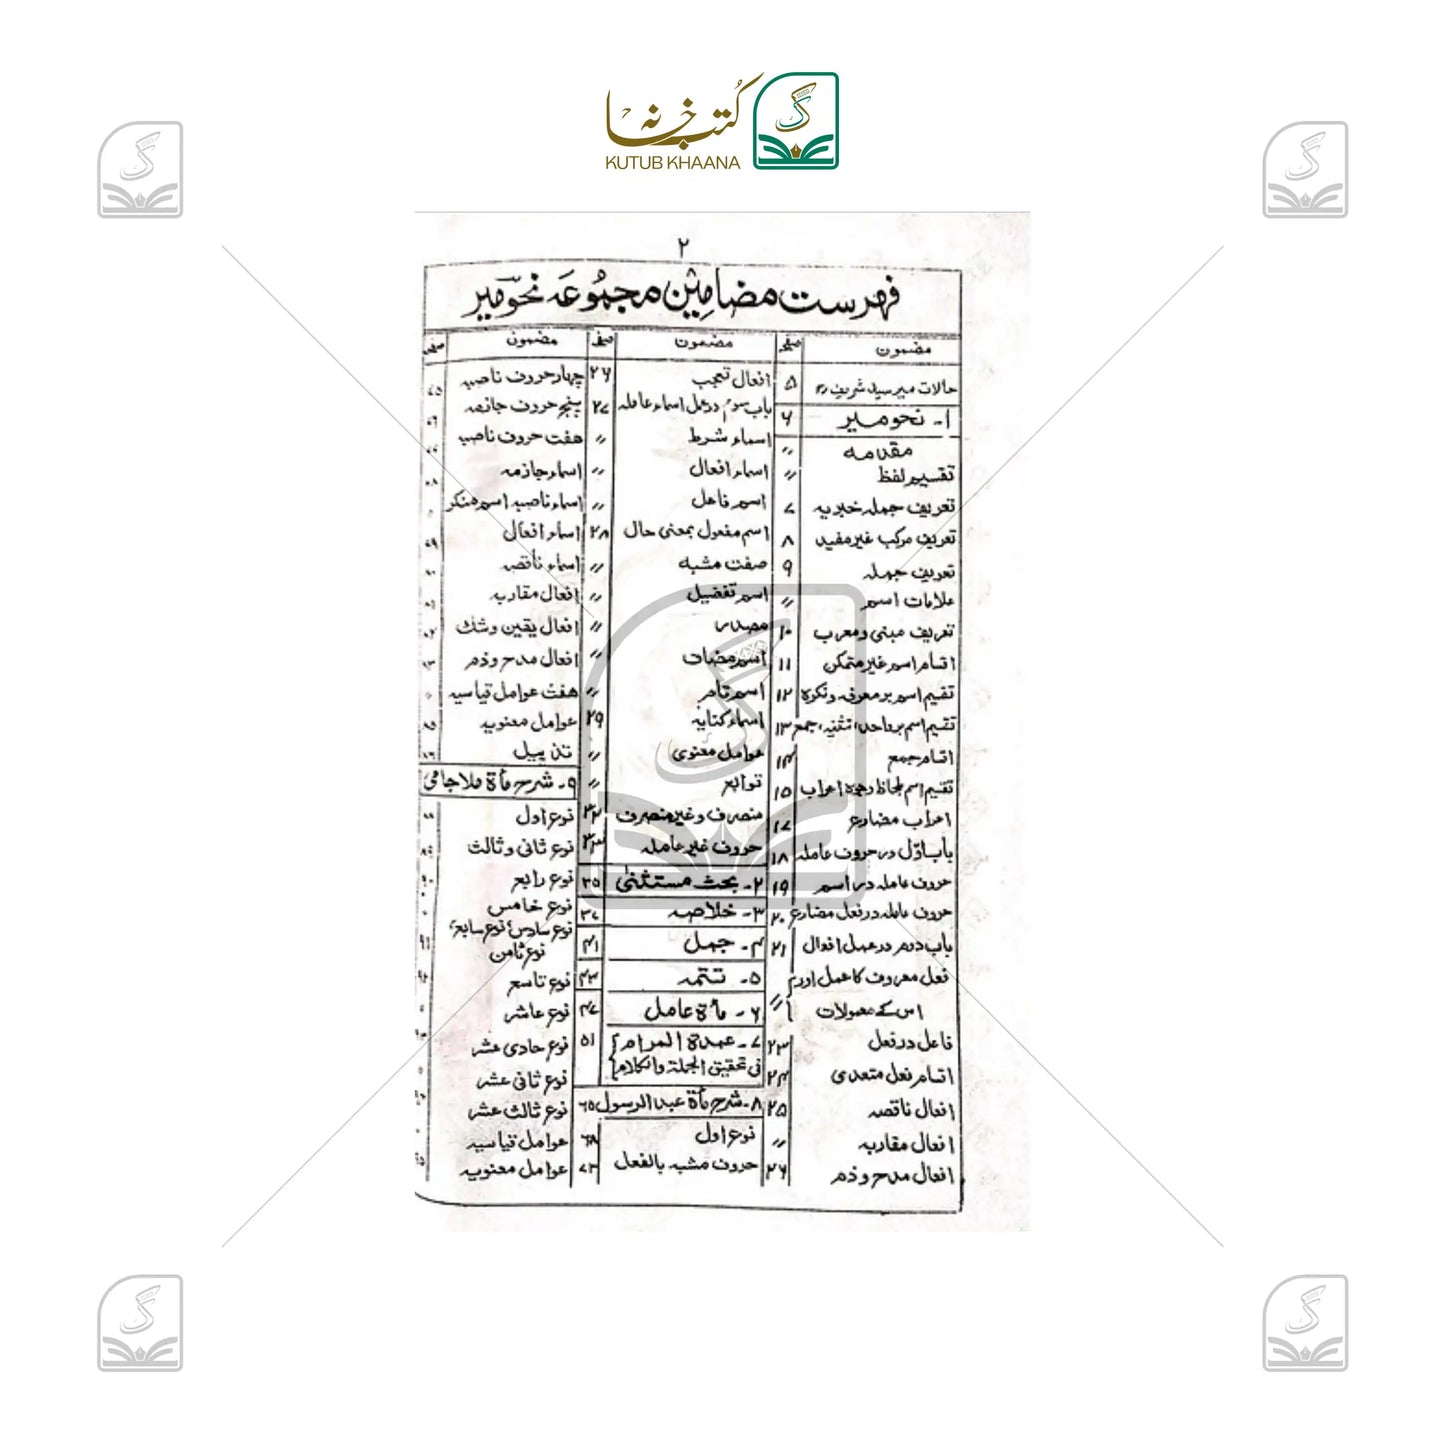 کُتب خانہ
KUTUB KHAANA
۲
فہرست مضامین مجموعہ نحو میر
مضمون صفحہ مضمون صفحہ مضمون صفحہ
حالات میر سید شریف ۵
۱۔ نحو میر ۶
مقدمہ 〃
تقسیم لفظ 〃
تعریف جملہ خبریہ ۷
تعریف مرکب غیر مفید ۸
تعریف جملہ ۹
علامات اسم 〃
تعریف مبنی و معرب ۱۰
اقسام اسم غیر متمکن ۱۱
تقسیم اسم بر معرفہ و نکرہ ۱۲
تقسیم اسم بر واحد، تثنیہ، جمع ۱۳
اقسام جمع ۱۴
تقسیم اسم بلحاظ وجوہ اعراب ۱۵
اعراب مضارع ۱۷
باب اوّل در حروف عاملہ ۱۸
حروف عاملہ در اسم ۱۹
حروف عاملہ در فعل مضارع ۲۰
باب دوم در عمل افعال ۲۱
فعل معروف کا عمل اور
اس کے معمولات 〃
فاعل در فعل ۲۳
اقسام فعل متعدی ۲۴
افعال ناقصہ ۲۵
افعال مقاربہ 〃
افعال مدح و ذم ۲۶
افعال تعجب ۲۶
باب سوم در عمل اسماء عاملہ ۲۷
اسماء شرط 〃
اسماء افعال 〃
اسم فاعل 〃
اسم مفعول بمعنی حال ۲۸
صفت مشبہ 〃
اسم تفضیل 〃
مصدر 〃
اسم مضاف 〃
اسم تام 〃
اسماء کنایہ ۲۹
عوامل معنوی 〃
توابع 〃
منصرف و غیر منصرف ۳۲
حروف غیر عاملہ ۳۳
۲۔ بحث مستثنیٰ ۳۵
۳۔ خلاصہ ۳۷
۴۔ جمل ۴۱
۵۔ تتمہ ۴۳
۶۔ مأۃ عامل ۴۷
۷۔ عمدۃ المرام ۵۱
فی تحقیق الجملۃ والکلام
۸۔ شرح مأۃ عبدالرسول ۶۵
نوع اول ۶۸
حروف مشبہ بالفعل ۷۳
چہار حروف ناصبہ ۷۵
پنج حروف جازمہ
ہفت حروف ناصبہ
اسماء جازمہ
اسماء ناصبہ اسم منکر
اسماء افعال
اسماء ناقصہ
افعال مقاربہ
افعال یقین و شک
افعال مدح و ذم
ہفت عوامل قیاسیہ
عوامل معنویہ ۸۵
تذییل ۸۶
۹۔ شرح مأۃ ملا جامی
نوع اول
نوع ثانی و ثالث
نوع رابع
نوع خامس
نوع سادس، نوع سابع،
نوع ثامن
نوع تاسع
نوع عاشر
نوع حادی عشر
نوع ثانی عشر
نوع ثالث عشر
عوامل قیاسیہ
عوامل معنویہ